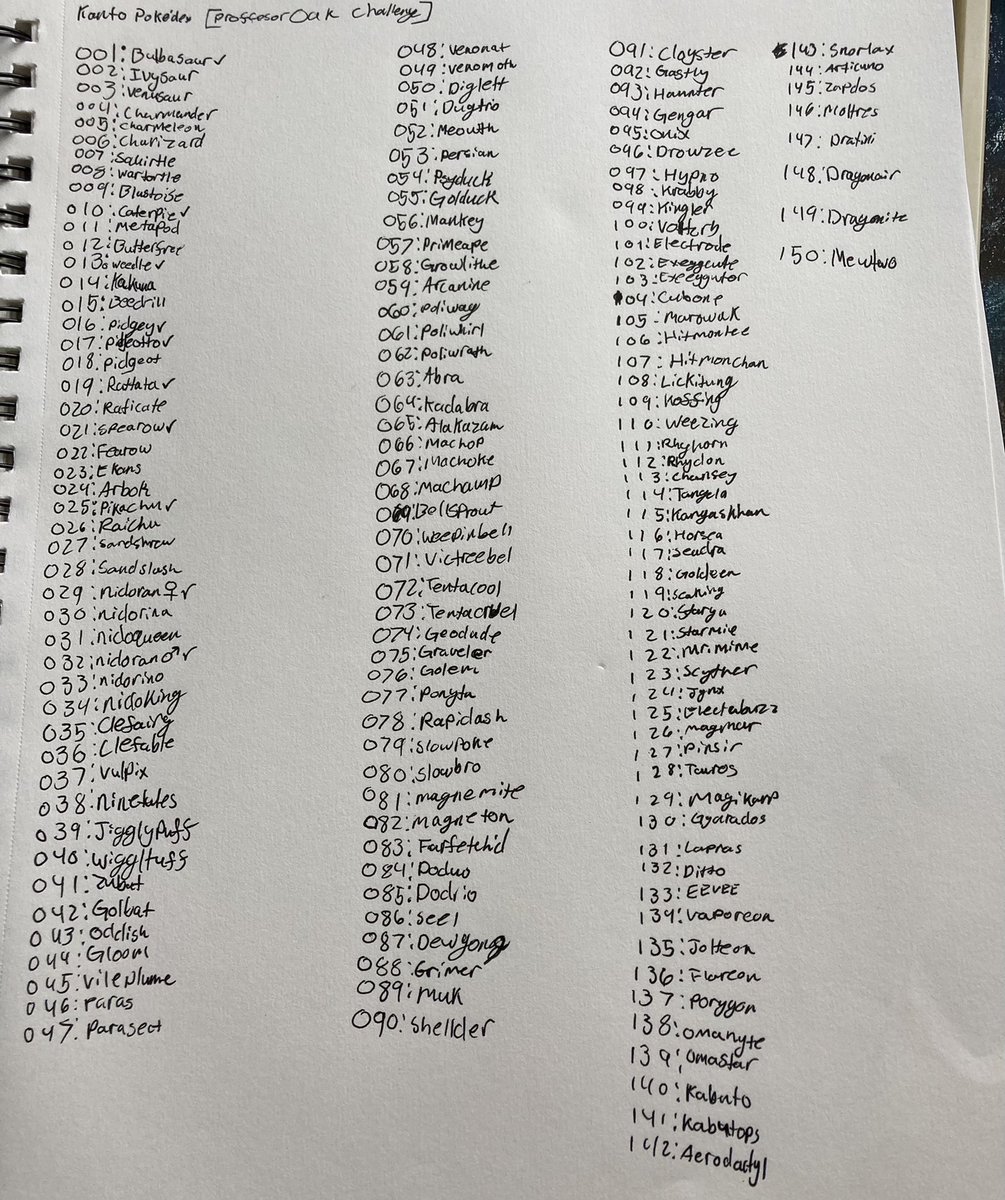 Kanto Pokédex [proffesor Oak challenge]
001: Bulbasaur ✓
002: Ivysaur
003: Venusaur
004: Charmander
005: Charmeleon
006: Charizard
007: Sqkirtle
008: wartortle
009: Blastoise
010: Caterpie ✓
011: Metapod
012: Butterfree
013: weedle ✓
014: Kakuna
015: Beedrill
016: pidgey ✓
017: pidgeotto ✓
018: pidgeot
019: Rattata ✓
020: Raticate
021: spearow ✓
022: Fearow
023: Ekans
024: Arbok
025: Pikachu ✓
026: Raichu
027: sandshrew
028: Sandslash
029: nidoran♀ ✓
030: nidorina
031: nidoqueen
032: nidoran♂ ✓
033: nidorino
034: nidoking
035: Clefairy
036: Clefable
037: Vulpix
038: Ninetales
039: Jigglypuff
040: wiggltuff
041: Zubat
042: Golbat
043: Oddish
044: Gloom
045: vileplume
046: Paras
047: Parasect
048: venonat
049: venomoth
050: Diglett
051: Dugtrio
052: Meowth
053: persian
054: Psyduck
055: Golduck
056: Mankey
057: Primeape
058: Growlithe
059: Arcanine
060: poliwag
061: Poliwhirl
062: Poliwrath
063: Abra
064: Kadabra
065: Alakazam
066: Machop
067: Machoke
068: Machamp
069: Bellsprout
070: weepinbell
071: Victreebel
072: Tentacool
073: Tentacruel
074: Geodude
075: Graveler
076: Golem
077: Ponyta
078: Rapidash
079: slowpoke
080: Slowbro
081: magnemite
082: magneton
083: Farfetch'd
084: Doduo
085: Dodrio
086: seel
087: Dewgong
088: Grimer
089: muk
090: shellder
091: Cloyster
092: Gastly
093: Haunter
094: Gengar
095: Onix
096: Drowzee
097: Hypno
098: Krabby
099: Kingler
100: Voltorb
101: Electrode
102: Exeggcute
103: Exeeggutor
104: Cubone
105: Marowak
106: Hitmonlee
107: Hitmonchan
108: Lickitung
109: Koffing
110: Weezing
111: Rhyhorn
112: Rhydon
113: chansey
114: Tangela
115: Kangaskhan
116: Horsea
117: Seadra
118: Goldeen
119: seaking
120: Staryu
121: Starmie
122: Mr.mime
123: Scyther
124: Jynx
125: Electabuzz
126: magmar
127: Pinsir
128: Tauros
129: Magikarp
130: Gyarados
131: Lapras
132: Ditto
133: EEVEE
134: Vaporeon
135: Jolteon
136: Flareon
137: Porygon
138: omanyte
139: Omastar
140: Kabuto
141: Kabutops
142: Aerodactyl
143: Snorlax
144: Articuno
145: Zapdos
146: Moltres
147: Dratini
148: Dragonair
149: Dragonite
150: Mewtwo